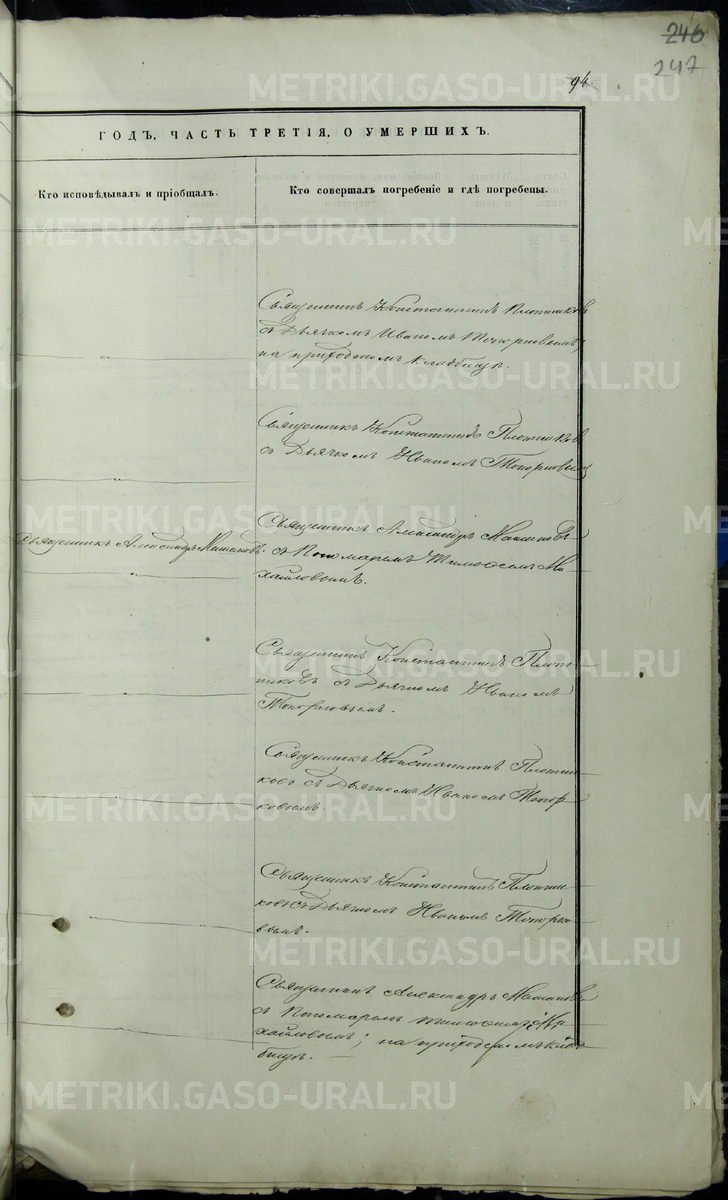 246
247
94.
ГОДЪ, ЧАСТЬ ТРЕТІЯ, О УМЕРШИХЪ.
Кто исповѣдывалъ и пріобщалъ.
Кто совершалъ погребеніе и гдѣ погребены.
Священникъ Константинъ Плотниковъ
съ Дьячкомъ Иваномъ Топорковымъ,
на приходскомъ кладбищѣ.
Священникъ Константинъ Плотниковъ
съ Дьячкомъ Иваномъ Топорковымъ
Священникъ Александръ
Священникъ Александръ
съ Пономаремъ Тимофеемъ Ми-
хайловымъ.
Священникъ Константинъ Плот-
никовъ съ Дьячкомъ Иваномъ
Топорковымъ.
Священникъ Константинъ Плотни-
ковъ съ Дьячкомъ Иваномъ Топор-
ковымъ.
Священникъ Константинъ Плотни-
ковъ съ Дьячкомъ Иваномъ Топорко-
вымъ.
Священникъ Александръ
съ Пономаремъ Тимофеемъ Ми-
хайловымъ; на приходскомъ клад-
бищѣ.
METRIKI.GASO-URAL.RU